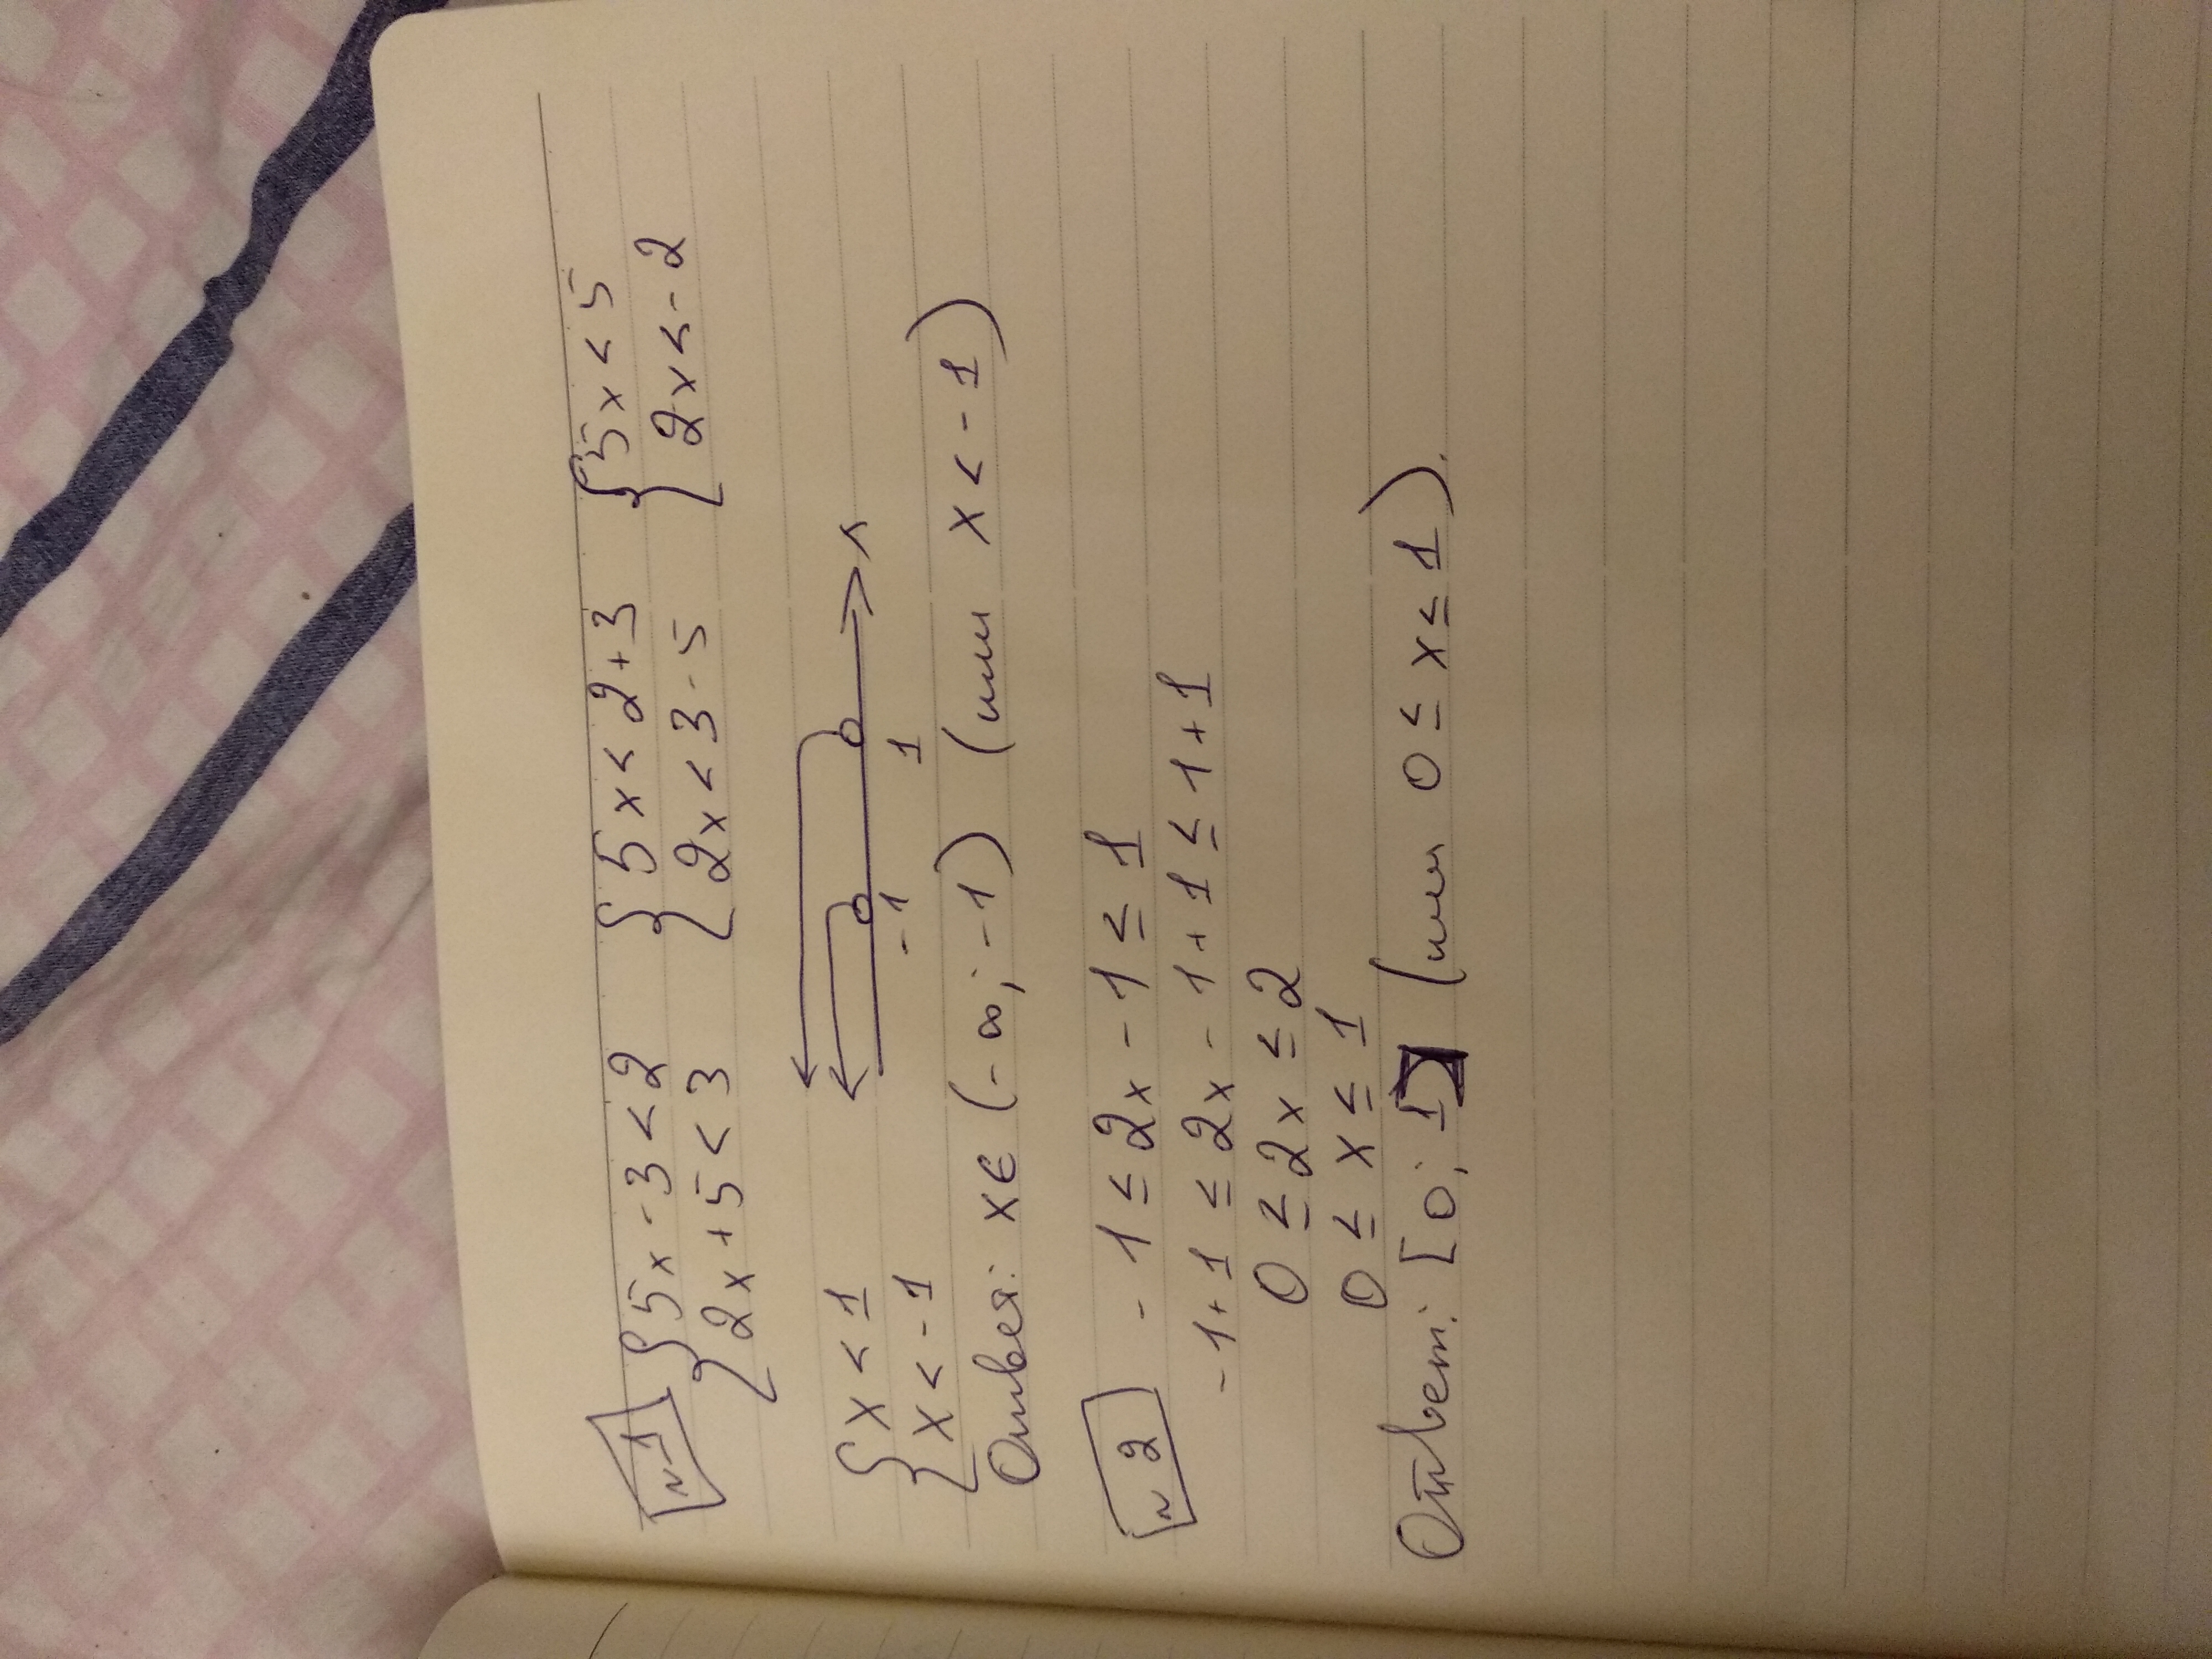 №1 { 5x - 3 < 2 { 5x < 2+3 { 5x < 5
2x + 5 < 3 2x < 3 - 5 2x < - 2
{ x < 1
x < - 1
-1 1 x
Ответ: x ∈ (-∞; -1) (или x < - 1)
№2 - 1 ≤ 2x - 1 ≤ 1
-1+1 ≤ 2x - 1+1 ≤ 1+1
0 ≤ 2x ≤ 2
0 ≤ x ≤ 1
Ответ: [0; 1] (или 0 ≤ x ≤ 1).